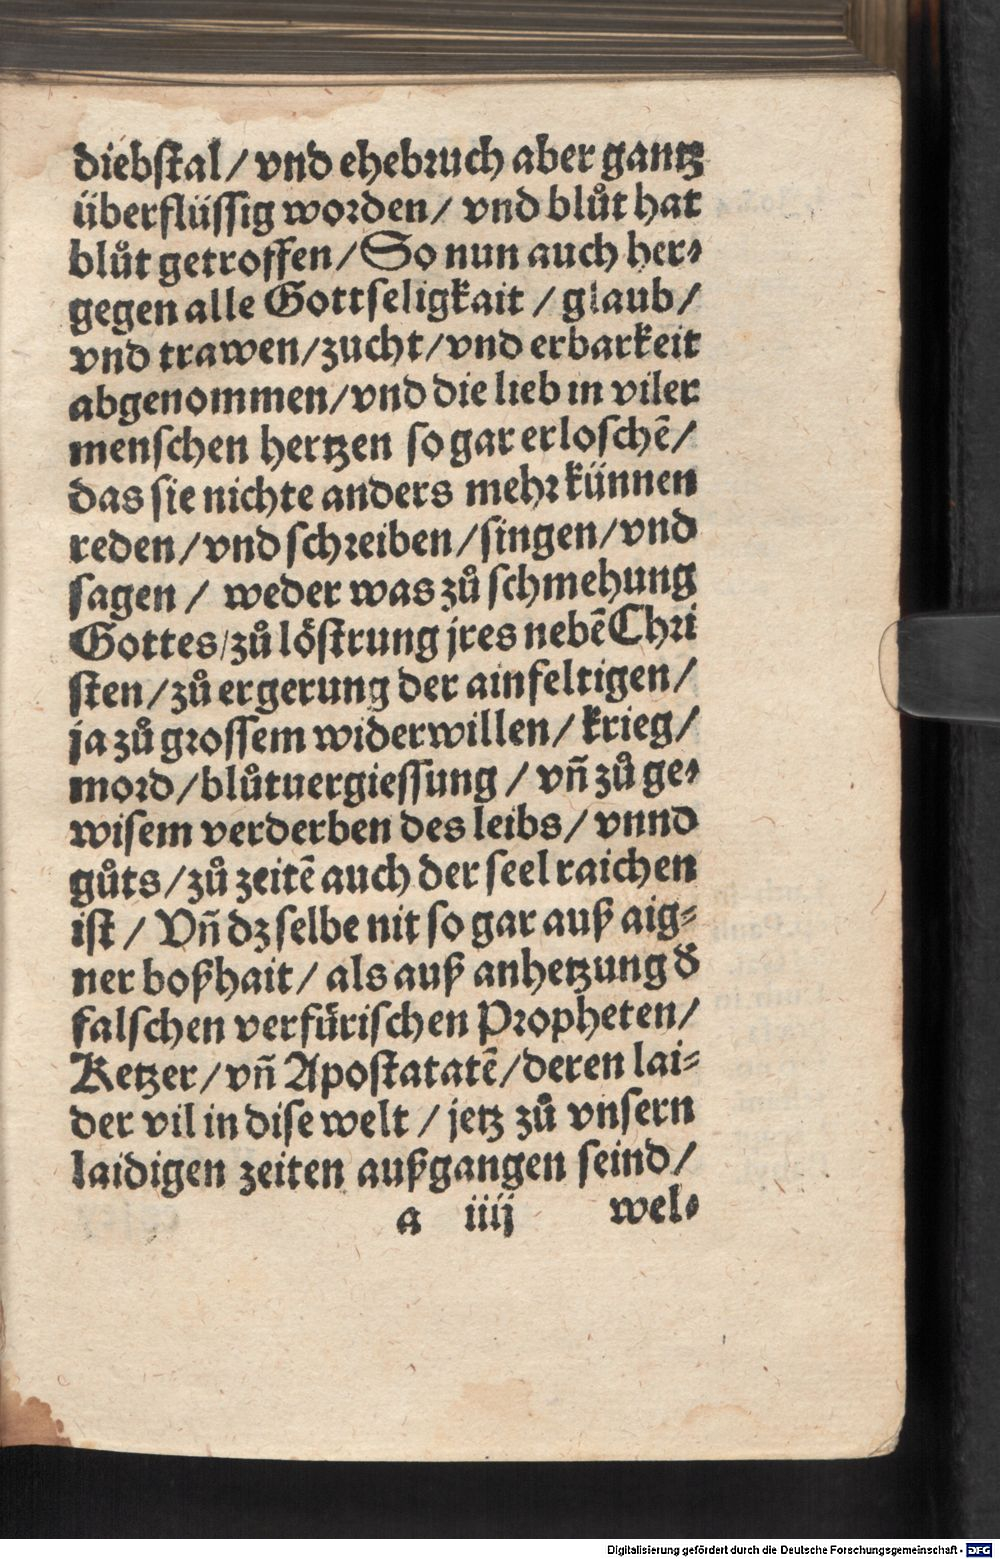 diebſtal / vnd ehebꝛuch aber gantz
überflüſſig woꝛden / vnd blůt hat
blůt getroffen / So nun auch her⸗
gegen alle Gottſeligkait / glaub /
vnd trawen / zucht / vnd erbarkeit
abgenommen / vnd die lieb in viler
menſchen hertzen ſo gar erloſchē /
das ſie nichte anders mehꝛ künnen
reden / vnd ſchꝛeiben / ſingen / vnd
ſagen / weder was zů ſchmehung
Gottes / zů löſtrung jres nebē Chꝛi
ſten / zů ergerung der ainfeltigen /
ja zů gꝛoſſem widerwillen / krieg /
moꝛd / blůtuergieſſung / vñ zů ge⸗
wiſem verderben des leibs / vnnd
gůts / zů zeitē auch der ſeel raichen
iſt / Vñ dz ſelbe nit ſo gar auß aig⸗
ner boßhait / als auß anhetzung d̓
falſchen verfüriſchen Pꝛopheten /
Ketzer / vñ Apoſtatatē / deren lai⸗
der vil in diſe welt / jetz zů vnſern
laidigen zeiten außgangen ſeind /
a iiij wel⸗
Digitalisierung gefördert durch die Deutsche Forschungsgemeinschaft - DFG